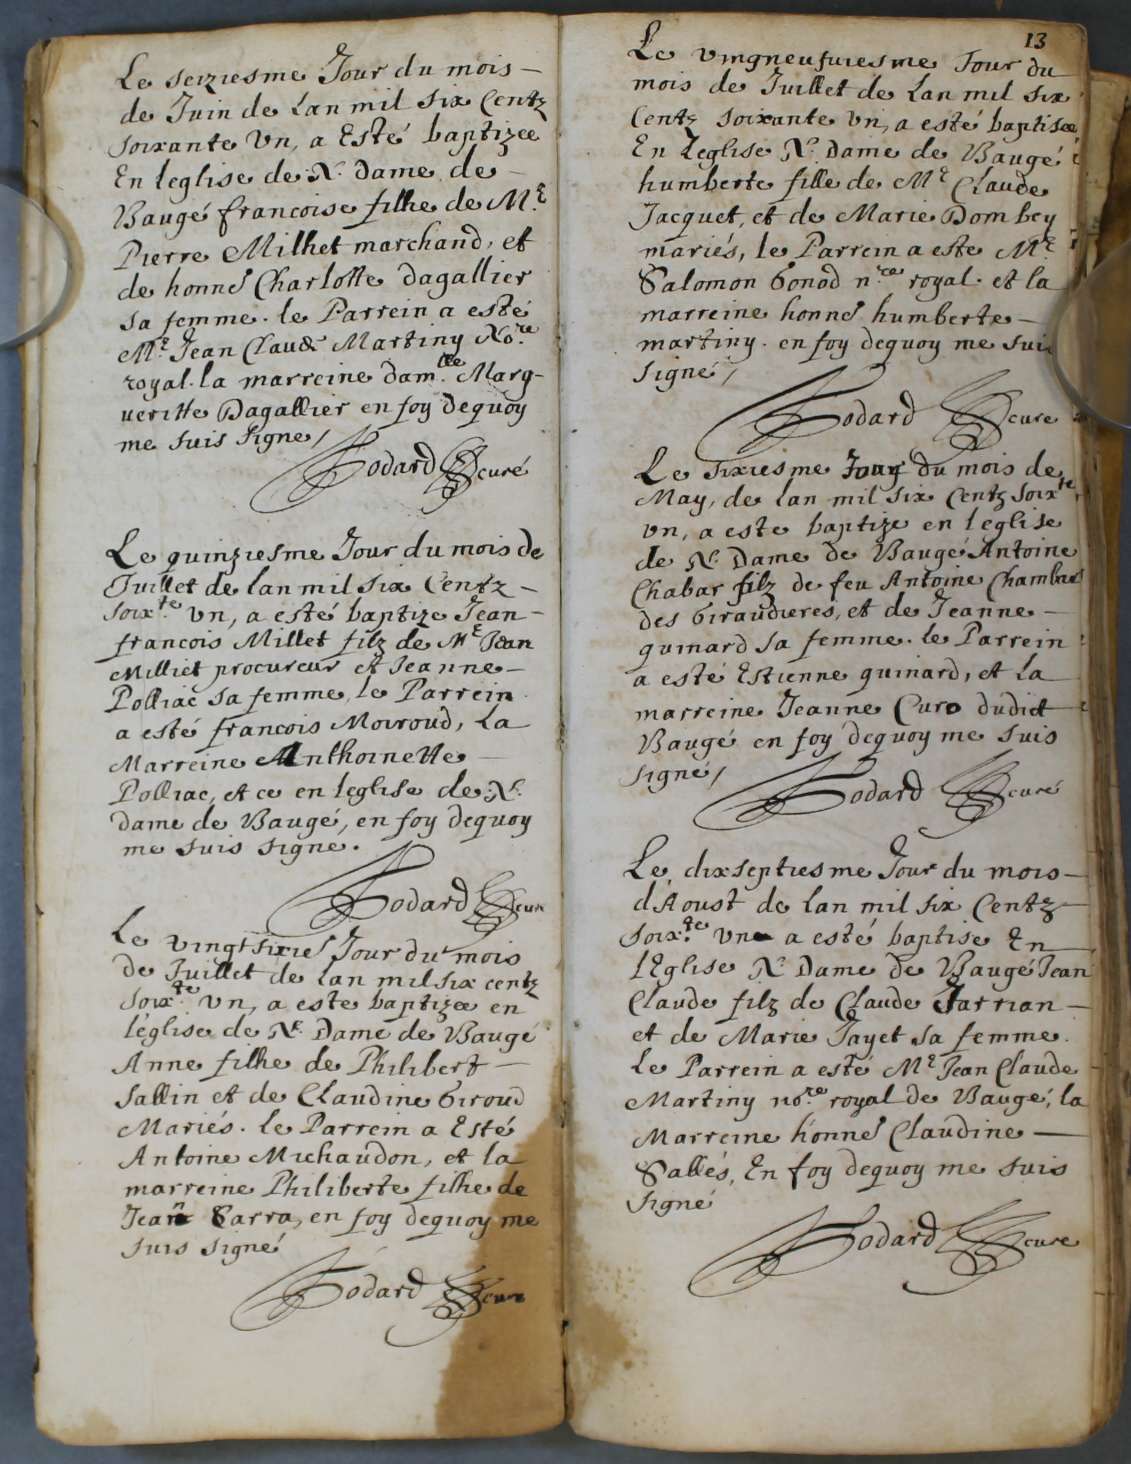 Le seiziesme Jour du mois
de Juin de Lan mil six Centz
soixante Vn, a Esté baptizee
En leglise de N. Dame de
Baugé francoise filhe de Mr.
Pierre Milhet marchand, et
de honne Charlotte Dagallier
sa femme. le Parrein a esté
Mr. Jean Claude Martiny No.re
royal. la marreine dam.lle Marg-
ueritte Dagallier en foy dequoy
me suis signe /
Bodard curé
Le quinziesme Jour du mois de
Juillet de lan mil six Centz
soix.te Vn, a esté baptize Jean
francois Millet filz de Mr. Jean
Milliet procureur et Jeanne
Polliac sa femme, le Parrein
a esté francois Moiroud, La
Marreine Anthoinette
Polliac, et ce en leglise de N.
dame de Baugé, en foy dequoy
me suis signe.
Bodard cure
Le vingt sixies Jour du mois
de Juillet de lan mil six centz
soix.te Vn, a este baptizee en
léglise de N. Dame de Baugé
Anne filhe de Philibert
Sallin et de Claudine Giroud
Mariés. le Parrein a Esté
Antoine Michaudon, et la
marreine Philiberte filhe de
Jean Sarra, en foy dequoy me
suis signé
Bodard cure
13
Le vingneufuiesme Jour du
mois de Juillet de Lan mil six
Centz soixante Vn, a esté baptisee
En Leglise N. Dame de Baugé
humberte fille de Mr. Claude
Jacquet, et de Marie Dombey
mariés, le Parrein a este Mr.
Salomon Gonod n.re royal. et la
marreine honne humberte
martiny. en foy dequoy me suis
signé /
Bodard cure
Le sixiesme Jour du mois de
May, de Lan mil six Centz soix.te
Vn, a este baptize en leglise
de N. Dame de Baugé Antoine
Chabar filz de feu Antoine Chambar
des Giraudieres, et de Jeanne
guinard sa femme. le Parrein
a esté Estienne guinard, et La
marreine Jeanne Curo dudict
Baugé en foy dequoy me suis
signé /
Bodard curé
Le dixseptiesme Jour du mois
dAoust de lan mil six Centz
soix.te Vn a esté baptise En
lEglise N. Dame de Baugé Jean
Claude filz de Claude Jarrian
et de Marie Jayet sa femme.
Le Parrein a esté Mr. Jean Claude
Martiny no.re royal de Baugé, la
Marreine honne Claudine
Sallés, En foy dequoy me suis
signé
Bodard cure